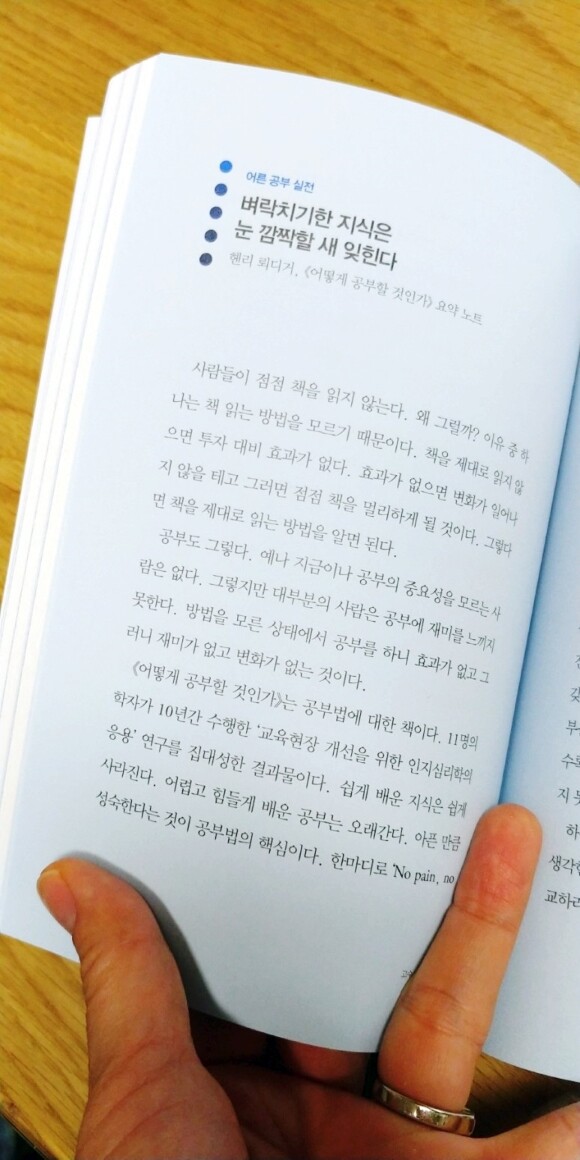 어른 공부 실전
벼락치기한 지식은
눈 깜짝할 새 잊힌다
헨리 뢰디거, 《어떻게 공부할 것인가》 요약 노트
사람들이 점점 책을 읽지 않는다. 왜 그럴까? 이유 중 하
나는 책 읽는 방법을 모르기 때문이다. 책을 제대로 읽지 않
으면 투자 대비 효과가 없다. 효과가 없으면 변화가 일어나
지 않을 테고 그러면 점점 책을 멀리하게 될 것이다. 그렇다
면 책을 제대로 읽는 방법을 알면 된다.
공부도 그렇다. 예나 지금이나 공부의 중요성을 모르는 사
람은 없다. 그렇지만 대부분의 사람은 공부에 재미를 느끼지
못한다. 방법을 모른 상태에서 공부를 하니 효과가 없고 그
러니 재미가 없고 변화가 없는 것이다.
《어떻게 공부할 것인가》는 공부법에 대한 책이다. 11명의
학자가 10년간 수행한 ‘교육현장 개선을 위한 인지심리학의
응용’ 연구를 집대성한 결과물이다. 쉽게 배운 지식은 쉽게
사라진다. 어렵고 힘들게 배운 공부는 오래간다. 아픈 만큼
성숙한다는 것이 공부법의 핵심이다. 한마디로 ‘No pain, no
부
수록
지 못
하
생각한
교하려